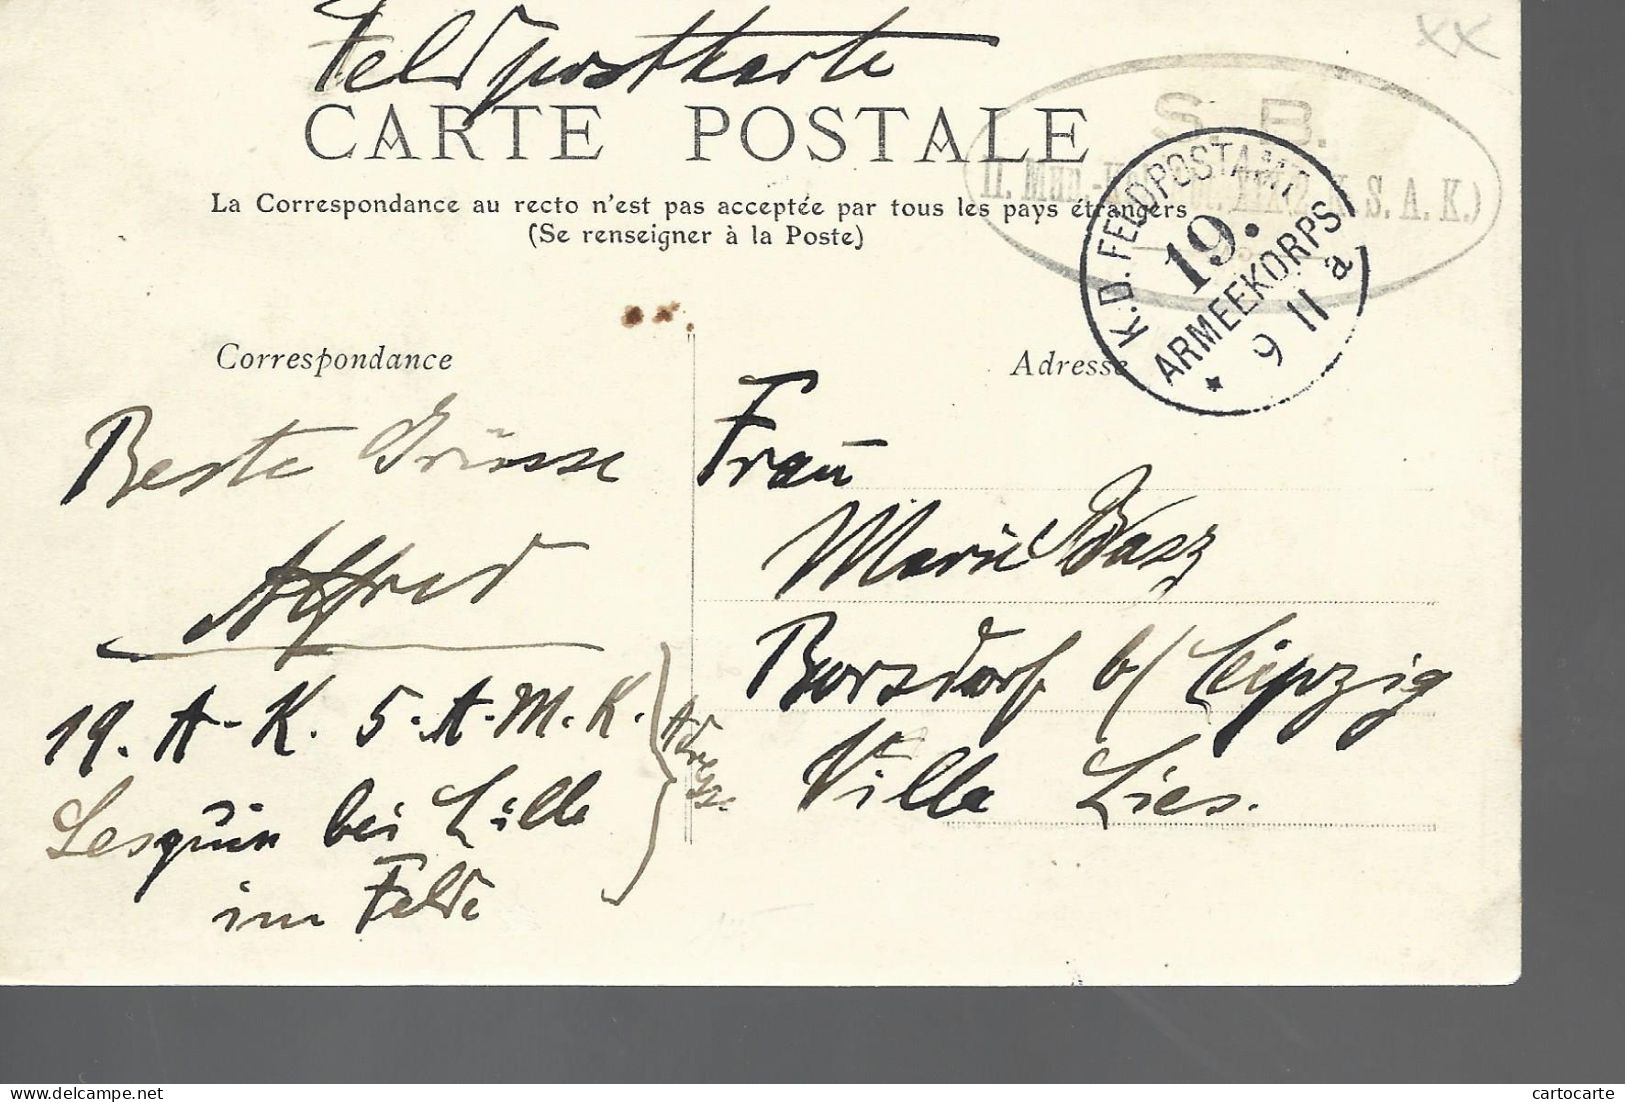 Feldpostkarte
CARTE POSTALE
La Correspondance au recto n'est pas acceptée par tous les pays étrangers
(Se renseigner à la Poste)
S. B.
II. S. A. K.)
K.D. FELDPOSTAMT
19.
ARMEEKORPS
* 9 11 a
Correspondance
Adresse
Beste Grüsse
Alfred
19. A-K. 5. A. M. K.
Lesquin bei Lille
im Felde
Adresse
Frau
Marie
Borsdorf b/ Leipzig
Villa Lies.
XX
cartocarte